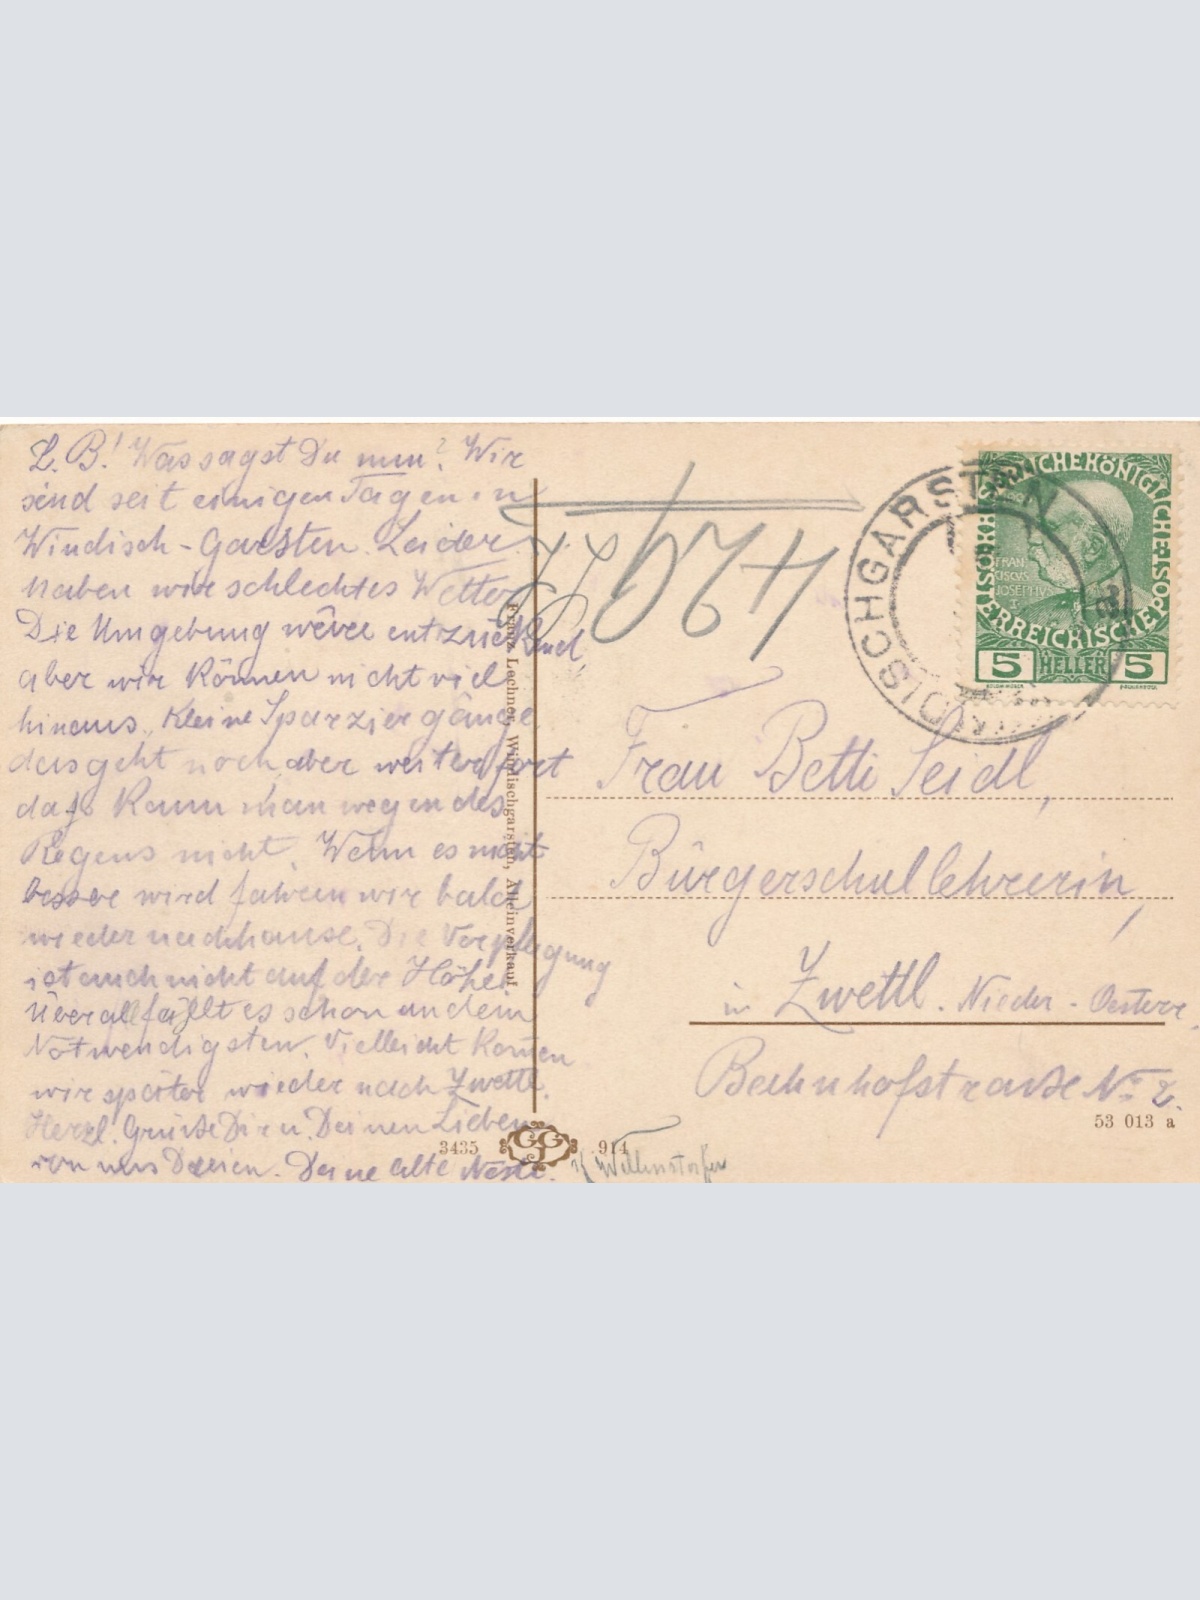 L. B.! Was sagst Du nun? Wir
sind seit einigen Tagen in
Windisch-Garsten. Leider
haben wir schlechtes Wetter
Die Umgebung wäre entzückend,
aber wir können nicht viel
hinaus. Kleine Sparziergänge
das geht noch aber weiter fort
daß kann man wegen des
Regens nicht. Wenn es nicht
besser wird fahren wir bald
wieder nachhause. Die Verpflegung
ist auch nicht auf der Höhe.
Überall fällt es schon an dem
Notwendigsten. Vielleicht kommen
wir später wieder nach Zwettl.
Herzl. Grüße Dir u. Deinen Lieben
von uns Dreien. Deine alte
Franz Lechner, Windischgarsten, Alleinverkauf.
3435
CGG
914
WINDISCHGARSTEN
KAISERLICHE KÖNIGLICHE ÖSTERREICHISCHE POST
FRAN
CISCVS
JOSEPHVS
I
5 HELLER 5
Frau Betti Seidl,
Bürgerschullehrerin,
in Zwettl. Nieder-Oesterr.
Bahnhofstraße No 2.
53 013 a